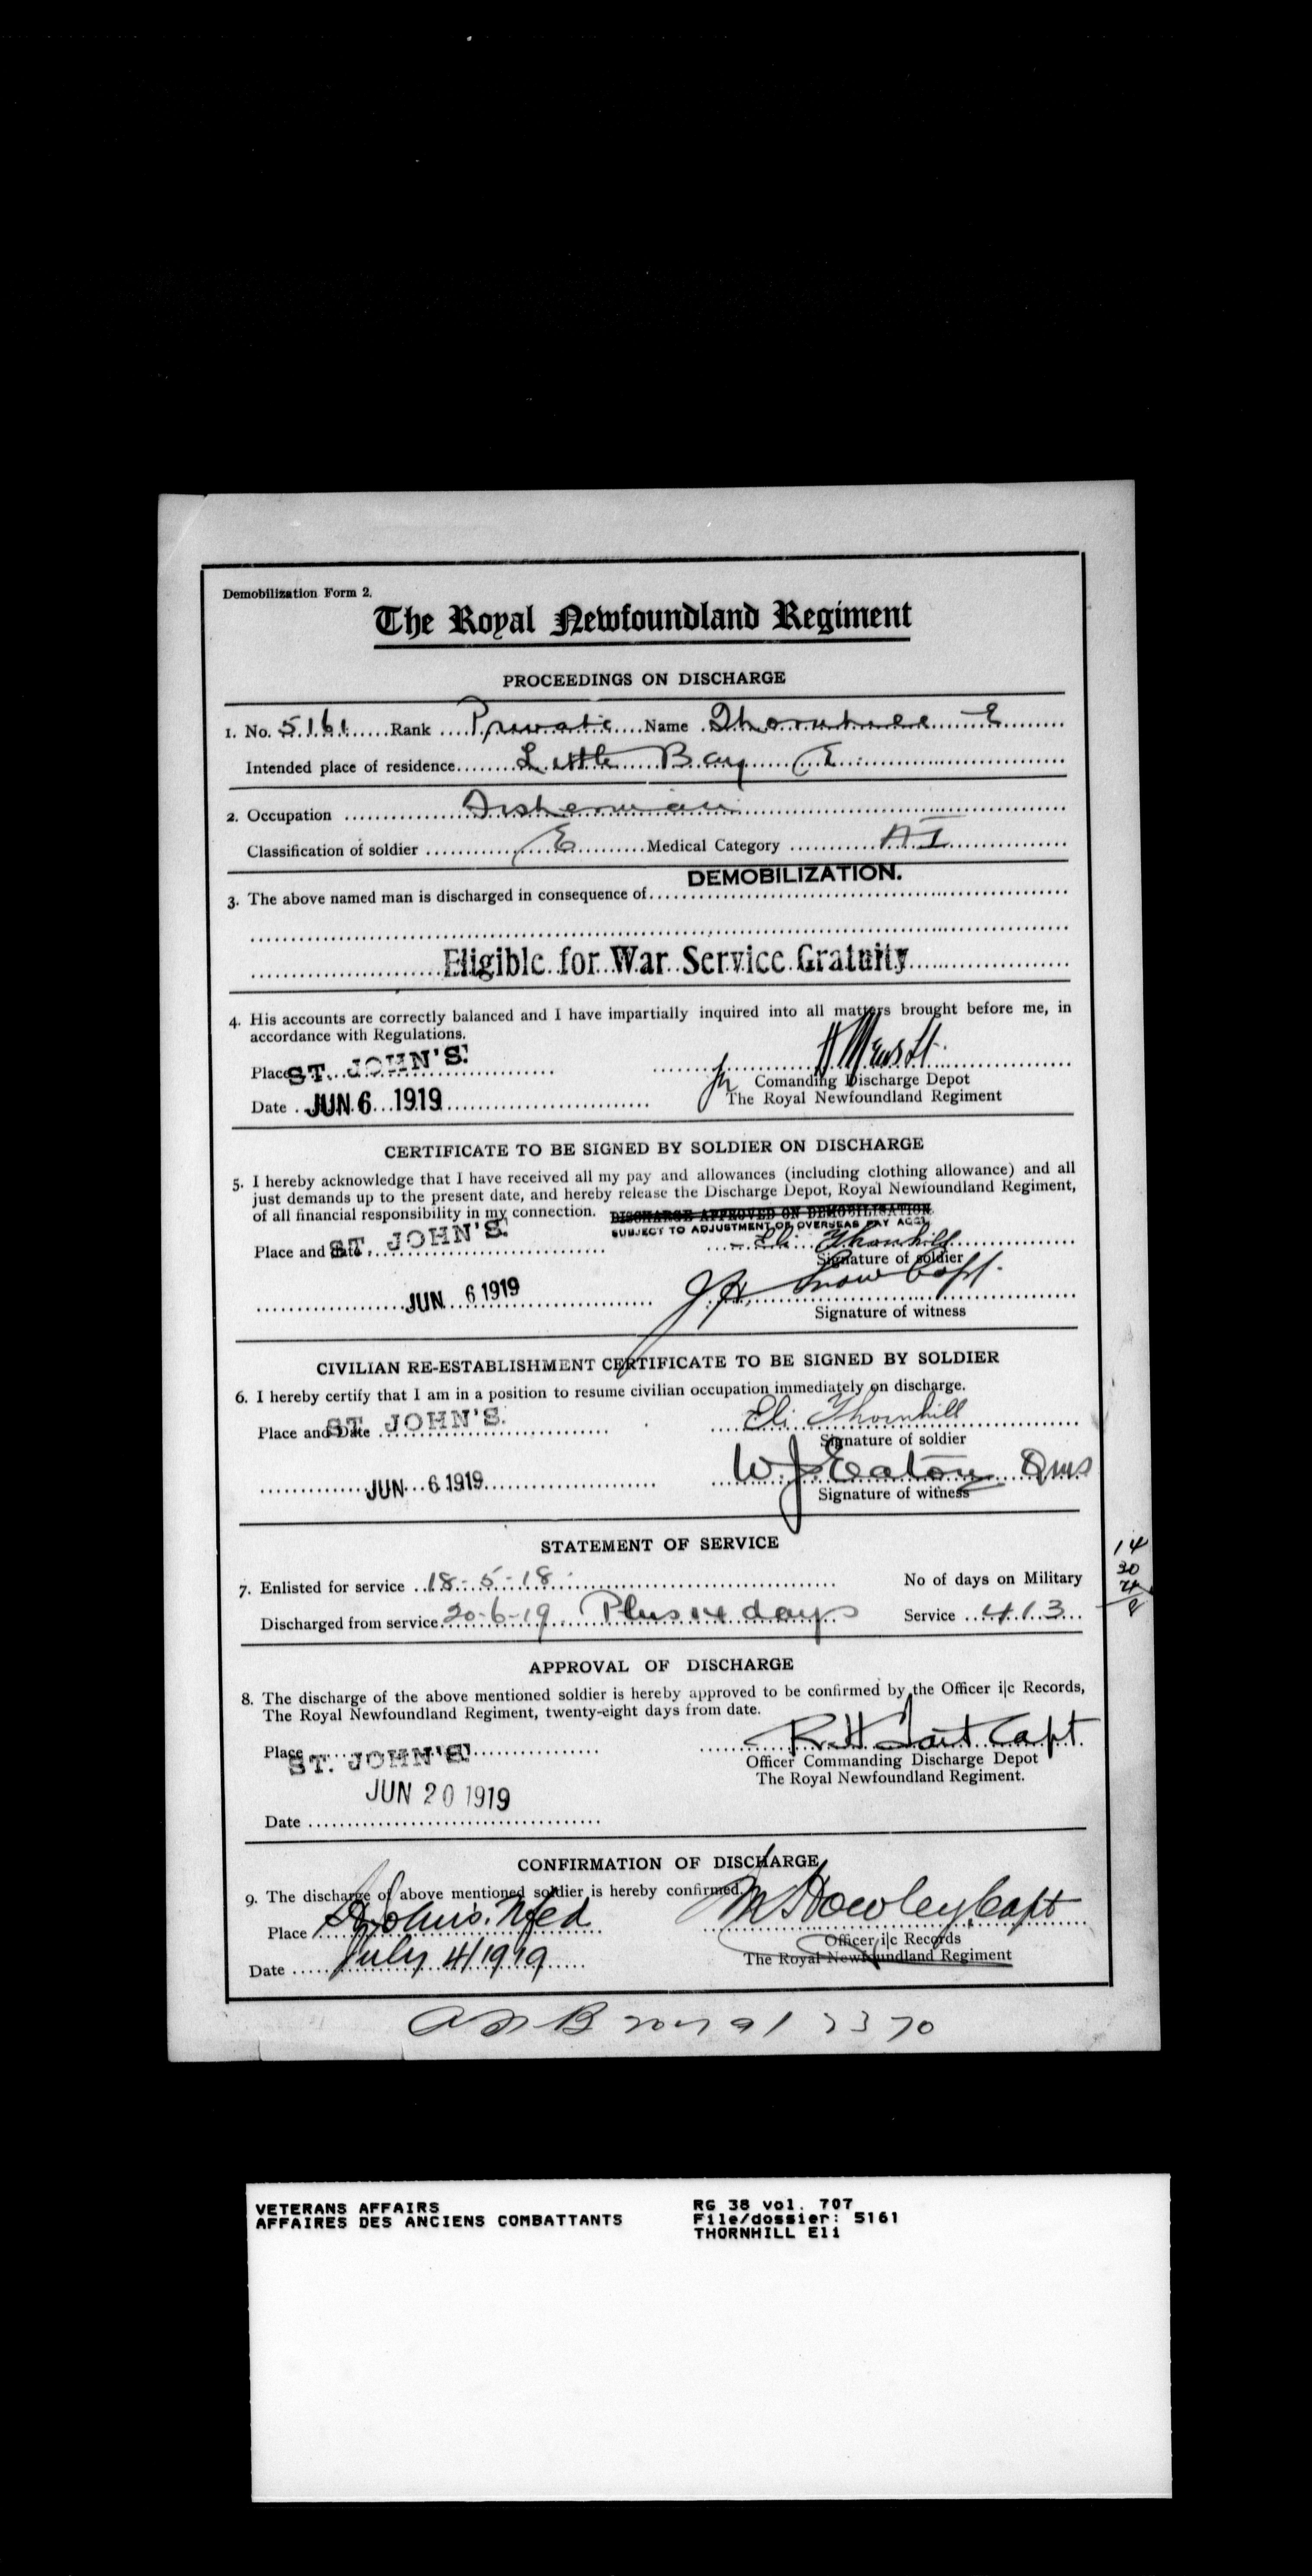 Demobilization Form 2.
The Royal Newfoundland Regiment
PROCEEDINGS ON DISCHARGE
1. No. 5161 Rank Private Name Thornhill E
Intended place of residence Little Bay
2. Occupation Fisherman
Classification of soldier E Medical Category A I
DEMOBILIZATION.
3. The above named man is discharged in consequence of
Eligible for War Service Gratuity
4. His accounts are correctly balanced and I have impartially inquired into all matters brought before me, in
accordance with Regulations.
Place ST. JOHN'S.
for Comanding Discharge Depot
Date JUN 6 1919 The Royal Newfoundland Regiment
CERTIFICATE TO BE SIGNED BY SOLDIER ON DISCHARGE
5. I hereby acknowledge that I have received all my pay and allowances (including clothing allowance) and all
just demands up to the present date, and hereby release the Discharge Depot, Royal Newfoundland Regiment,
of all financial responsibility in my connection. DISCHARGE APPROVED ON DEMOBILISATION
SUBJECT TO ADJUSTMENT OF OVERSEAS PAY ACCT.
Place and Date ST. JOHN'S. Eli Thornhill
Signature of soldier
JUN 6 1919 J.H. Snow Capt.
Signature of witness
CIVILIAN RE-ESTABLISHMENT CERTIFICATE TO BE SIGNED BY SOLDIER
6. I hereby certify that I am in a position to resume civilian occupation immediately on discharge.
Place and Date ST. JOHN'S. Eli Thornhill
Signature of soldier
JUN 6 1919 W J Eaton QMS
Signature of witness
STATEMENT OF SERVICE
7. Enlisted for service 18-5-18 No of days on Military
Discharged from service 20-6-19 Plus 14 days Service 413
14
30
APPROVAL OF DISCHARGE
8. The discharge of the above mentioned soldier is hereby approved to be confirmed by the Officer i|c Records,
The Royal Newfoundland Regiment, twenty-eight days from date.
Place ST. JOHN'S. R.H. Tait Capt.
Officer Commanding Discharge Depot
The Royal Newfoundland Regiment.
JUN 20 1919
Date
CONFIRMATION OF DISCHARGE
9. The discharge of above mentioned soldier is hereby confirmed.
Place St John's. Nfld Howley Capt
Officer i|c Records
Date July 4/1919 The Royal Newfoundland Regiment
VETERANS AFFAIRS
AFFAIRES DES ANCIENS COMBATTANTS
RG 38 vol. 707
File/dossier: 5161
THORNHILL Eli